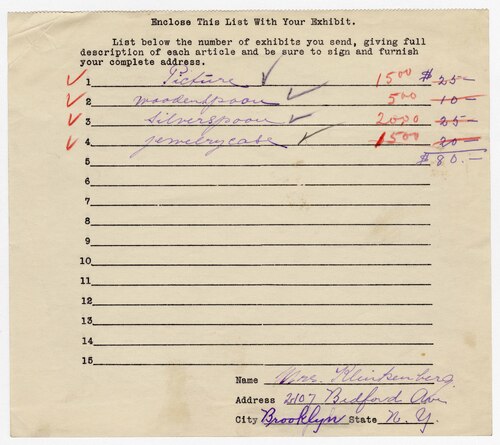 Enclose This List With Your Exhibit.
List below the number of exhibits you send, giving full
description of each article and be sure to sign and furnish
your complete address.
1 Picture 15 00 $ 25-
2 woodenspoon 5 00 10-
3 silverspoon 20 00 25-
4 jewelrycase 15 00 20-
5 $ 80.-
6
7
8
9
10
11
12
13
14
15
Name Mrs. Klinkenberg
Address 2107 Bedford Ave
City Brooklyn State N. Y.